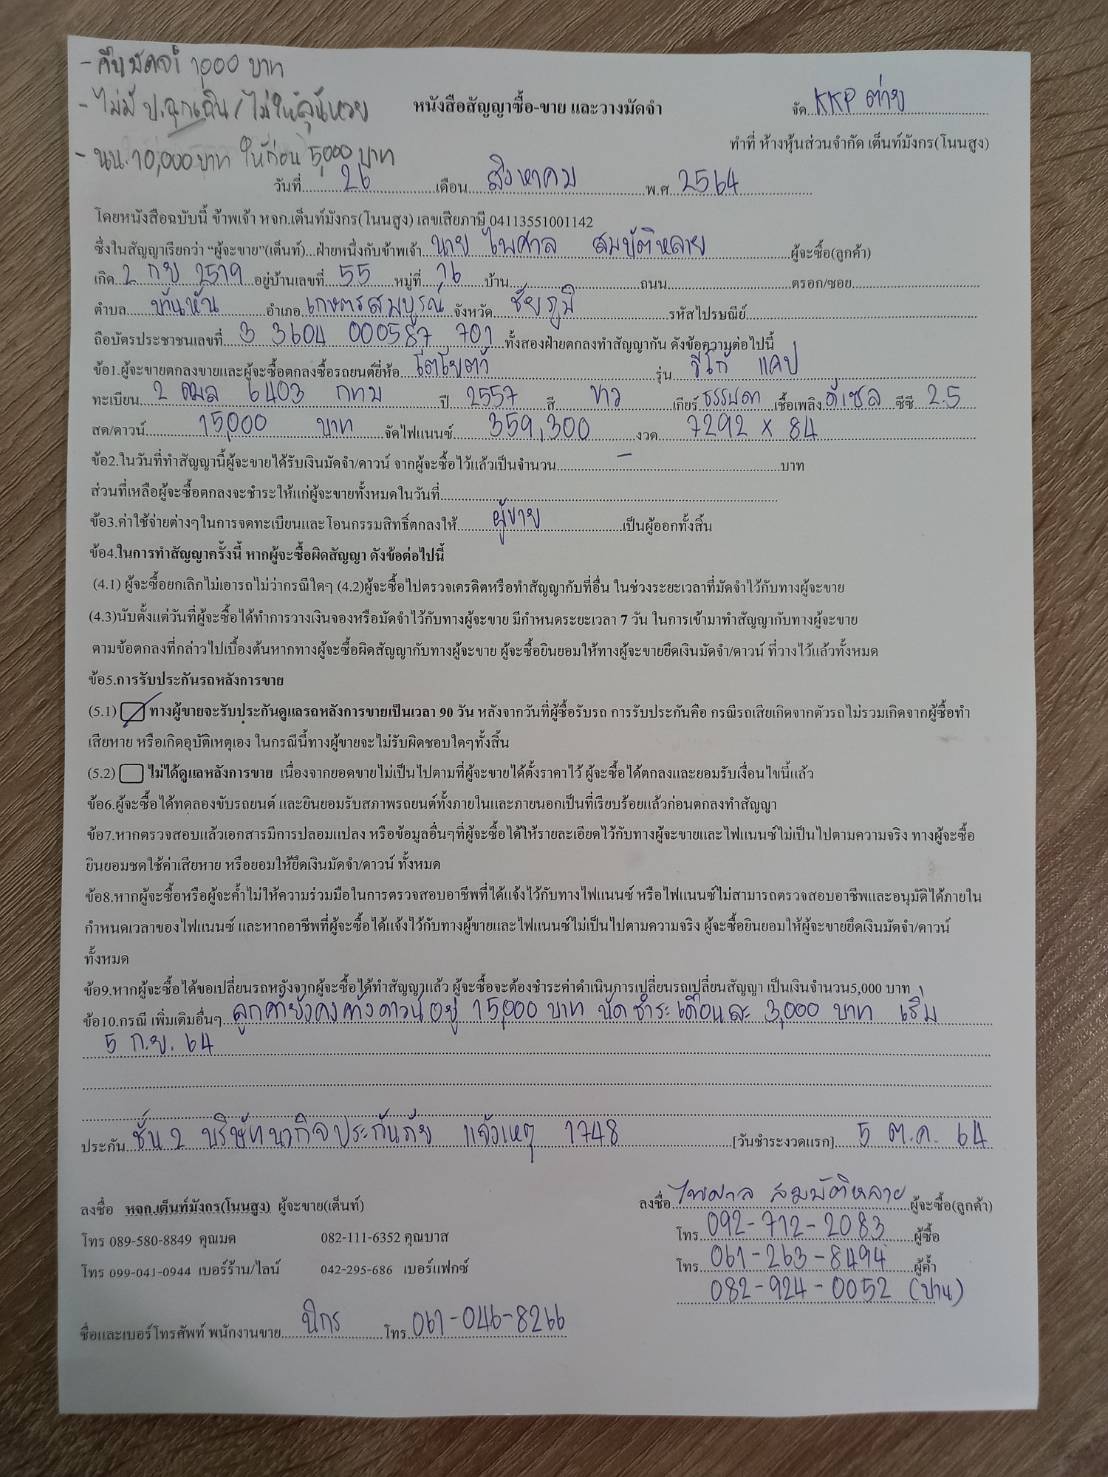 - คืนมัดจำ 1000 บาท
- ไม่มี ป.ฉุกเฉิน / ไม่ให้ลุ้นหวย
- นน. 10,000 บาท ให้ก่อน 5,000 บาท
หนังสือสัญญาซื้อ-ขาย และวางมัดจำ
จัด KKP ต่าย
ทำที่ ห้างหุ้นส่วนจำกัด เต็นท์มังกร(โนนสูง)
วันที่ 26 เดือน สิงหาคม พ.ศ. 2564
โดยหนังสือฉบับนี้ ข้าพเจ้า หจก.เต็นท์มังกร(โนนสูง) เลขเสียภาษี 04113551001142
ซึ่งในสัญญาเรียกว่า "ผู้จะขาย"(เต็นท์)...ฝ่ายหนึ่งกับข้าพเจ้า นาย ไพศาล สมบัติหลาย ผู้จะซื้อ(ลูกค้า)
เกิด 2 กย 2519 อยู่บ้านเลขที่ 55 หมู่ที่ 16 บ้าน ถนน ตรอก/ซอย
ตำบล บ้านหัน อำเภอ เกษตรสมบูรณ์ จังหวัด ชัยภูมิ รหัสไปรษณีย์
ถือบัตรประชาชนเลขที่ 3 3604 000587 701 ทั้งสองฝ่ายตกลงทำสัญญากัน ดังข้อความต่อไปนี้
ข้อ1.ผู้จะขายตกลงขายและผู้จะซื้อตกลงซื้อรถยนต์ยี่ห้อ โตโยต้า รุ่น วีโก้ แคป
ทะเบียน 2 ฒล 6403 กทม ปี 2557 สี ขาว เกียร์ ธรรมดา เชื้อเพลิง ดีเซล ซีซี 2.5
สด/ดาวน์ 15,000 บาท จัดไฟแนนซ์ 359,300 งวด 7292 x 84
ข้อ2.ในวันที่ทำสัญญานี้ผู้จะขายได้รับเงินมัดจำ/ดาวน์ จากผู้จะซื้อไว้แล้วเป็นจำนวน - บาท
ส่วนที่เหลือผู้จะซื้อตกลงจะชำระให้แก่ผู้จะขายทั้งหมดในวันที่
ข้อ3.ค่าใช้จ่ายต่างๆในการจดทะเบียนและโอนกรรมสิทธิ์ตกลงให้ ผู้ขาย เป็นผู้ออกทั้งสิ้น
ข้อ4.ในการทำสัญญาครั้งนี้ หากผู้จะซื้อผิดสัญญา ดังข้อต่อไปนี้
(4.1) ผู้จะซื้อยกเลิกไม่เอารถไม่ว่ากรณีใดๆ (4.2)ผู้จะซื้อไปตรวจเครดิตหรือทำสัญญากับที่อื่น ในช่วงระยะเวลาที่มัดจำไว้กับทางผู้จะขาย
(4.3)นับตั้งแต่วันที่ผู้จะซื้อได้ทำการวางเงินจองหรือมัดจำไว้กับทางผู้จะขาย มีกำหนดระยะเวลา 7 วัน ในการเข้ามาทำสัญญากับทางผู้จะขาย
ตามข้อตกลงที่กล่าวไปเบื้องต้นหากทางผู้จะซื้อผิดสัญญากับทางผู้จะขาย ผู้จะซื้อยินยอมให้ทางผู้จะขายยึดเงินมัดจำ/ดาวน์ ที่วางไว้แล้วทั้งหมด
ข้อ5.การรับประกันรถหลังการขาย
(5.1) ทางผู้ขายจะรับประกันดูแลรถหลังการขายเป็นเวลา 90 วัน หลังจากวันที่ผู้ซื้อรับรถ การรับประกันคือ กรณีรถเสียเกิดจากตัวรถไม่รวมเกิดจากผู้ซื้อทำ
เสียหาย หรือเกิดอุบัติเหตุเอง ในกรณีนี้ทางผู้ขายจะไม่รับผิดชอบใดๆทั้งสิ้น
(5.2) ไม่ได้ดูแลหลังการขาย เนื่องจากยอดขายไม่เป็นไปตามที่ผู้จะขายได้ตั้งราคาไว้ ผู้จะซื้อได้ตกลงและยอมรับเงื่อนไขนี้แล้ว
ข้อ6.ผู้จะซื้อได้ทดลองขับรถยนต์ และยินยอมรับสภาพรถยนต์ทั้งภายในและภายนอกเป็นที่เรียบร้อยแล้วก่อนตกลงทำสัญญา
ข้อ7.หากตรวจสอบแล้วเอกสารมีการปลอมแปลง หรือข้อมูลอื่นๆที่ผู้จะซื้อได้ให้รายละเอียดไว้กับทางผู้จะขายและไฟแนนซ์ไม่เป็นไปตามความจริง ทางผู้จะซื้อ
ยินยอมชดใช้ค่าเสียหาย หรือยอมให้ยึดเงินมัดจำ/ดาวน์ ทั้งหมด
ข้อ8.หากผู้จะซื้อหรือผู้จะค้ำไม่ให้ความร่วมมือในการตรวจสอบอาชีพที่ได้แจ้งไว้กับทางไฟแนนซ์ หรือไฟแนนซ์ไม่สามารถตรวจสอบอาชีพและอนุมัติได้ภายใน
กำหนดเวลาของไฟแนนซ์ และหากอาชีพที่ผู้จะซื้อได้แจ้งไว้กับทางผู้ขายและไฟแนนซ์ไม่เป็นไปตามความจริง ผู้จะซื้อยินยอมให้ผู้จะขายยึดเงินมัดจำ/ดาวน์
ทั้งหมด
ข้อ9.หากผู้จะซื้อได้ขอเปลี่ยนรถหลังจากผู้จะซื้อได้ทำสัญญาแล้ว ผู้จะซื้อจะต้องชำระค่าดำเนินการเปลี่ยนรถเปลี่ยนสัญญา เป็นเงินจำนวน5,000 บาท
ข้อ10.กรณี เพิ่มเติมอื่นๆ ลูกค้ายังคงค้างดาวน์อยู่ 15,000 บาท นัดชำระเดือนละ 3,000 บาท เริ่ม
5 ก.ย. 64
ประกัน ชั้น 2 บริษัทนวกิจประกันภัย แจ้งเหตุ 1748 [วันชำระงวดแรก] 5 ต.ค. 64
ลงชื่อ หจก.เต็นท์มังกร(โนนสูง) ผู้จะขาย(เต็นท์)
ลงชื่อ ไพศาล สมบัติหลาย ผู้จะซื้อ(ลูกค้า)
โทร 089-580-8849 คุณมด 082-111-6352 คุณบาส
โทร 092-712-2083 ผู้ซื้อ
โทร 099-041-0944 เบอร์ร้าน/ไลน์ 042-295-686 เบอร์แฟกซ์
โทร 061-263-8494 ผู้ค้ำ
082-924-0052 (ปาน)
ชื่อและเบอร์โทรศัพท์ พนักงานขาย นิกร โทร 061-046-8266